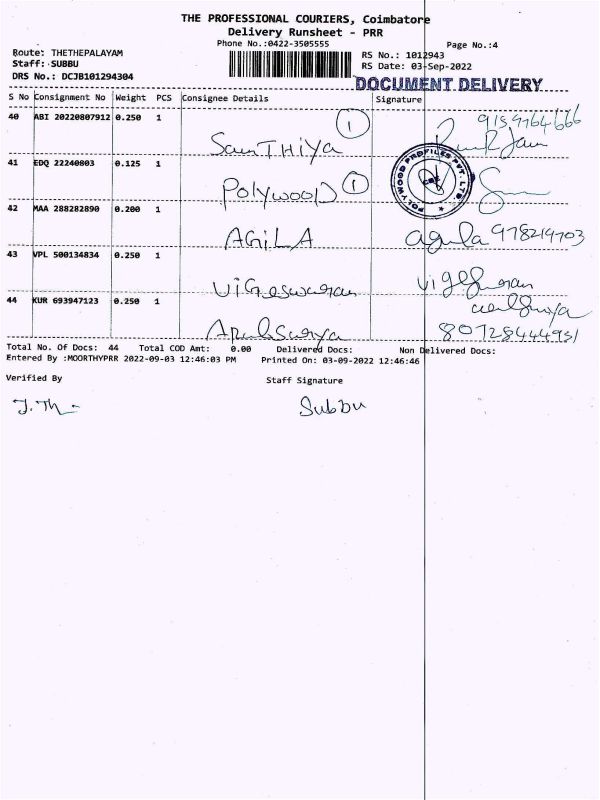 THE PROFESSIONAL COURIERS, Coimbatore
Delivery Runsheet - PRR
Phone No.:0422-3505555
Page No.:4
Route: THETHEPALAYAM
RS No.: 1012943
Staff: SUBBU
RS Date: 03-Sep-2022
DRS No.: DCJB101294304
DOCUMENT DELIVERY
S No Consignment No Weight PCS Consignee Details Signature
40 ABI 20220807912 0.250 1
1 9159764666
SanTHiYa
41 EDQ 22240803 0.125 1
POLYWOOD 1
POLYWOOD PROFILES PVT. LTD. CBE
42 MAA 288282890 0.200 1
AGiLA agula 978219703
43 VPL 500134834 0.250 1
ViGneswaran
44 KUR 693947123 0.250 1
Arulsurya 80728444951
Total No. Of Docs: 44 Total COD Amt: 0.00 Delivered Docs: Non Delivered Docs:
Entered By :MOORTHYPRR 2022-09-03 12:46:03 PM Printed On: 03-09-2022 12:46:46
Verified By Staff Signature
Subbu